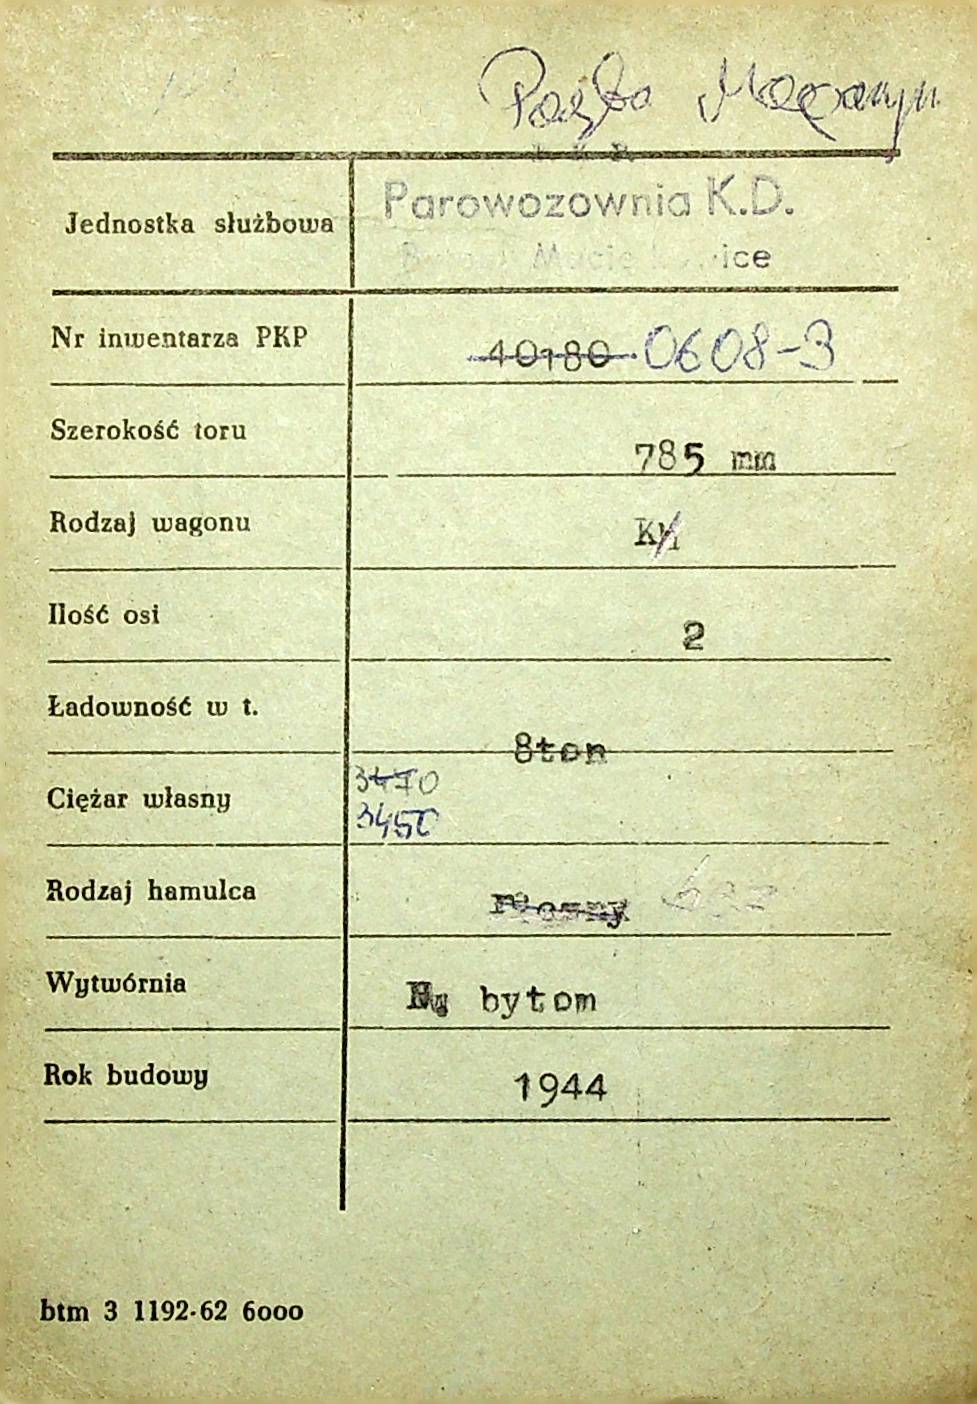 Jednostka służbowa
Parowozownia K.D.
Nr inwentarza PKP 40180 0608-3
Szerokość toru 785 mm
Rodzaj wagonu
Ilość osi 2
Ładowność w t. 8ton
Ciężar własny 3470
3450
Rodzaj hamulca
Wytwórnia bytom
Rok budowy 1944
btm 3 1192-62 6000